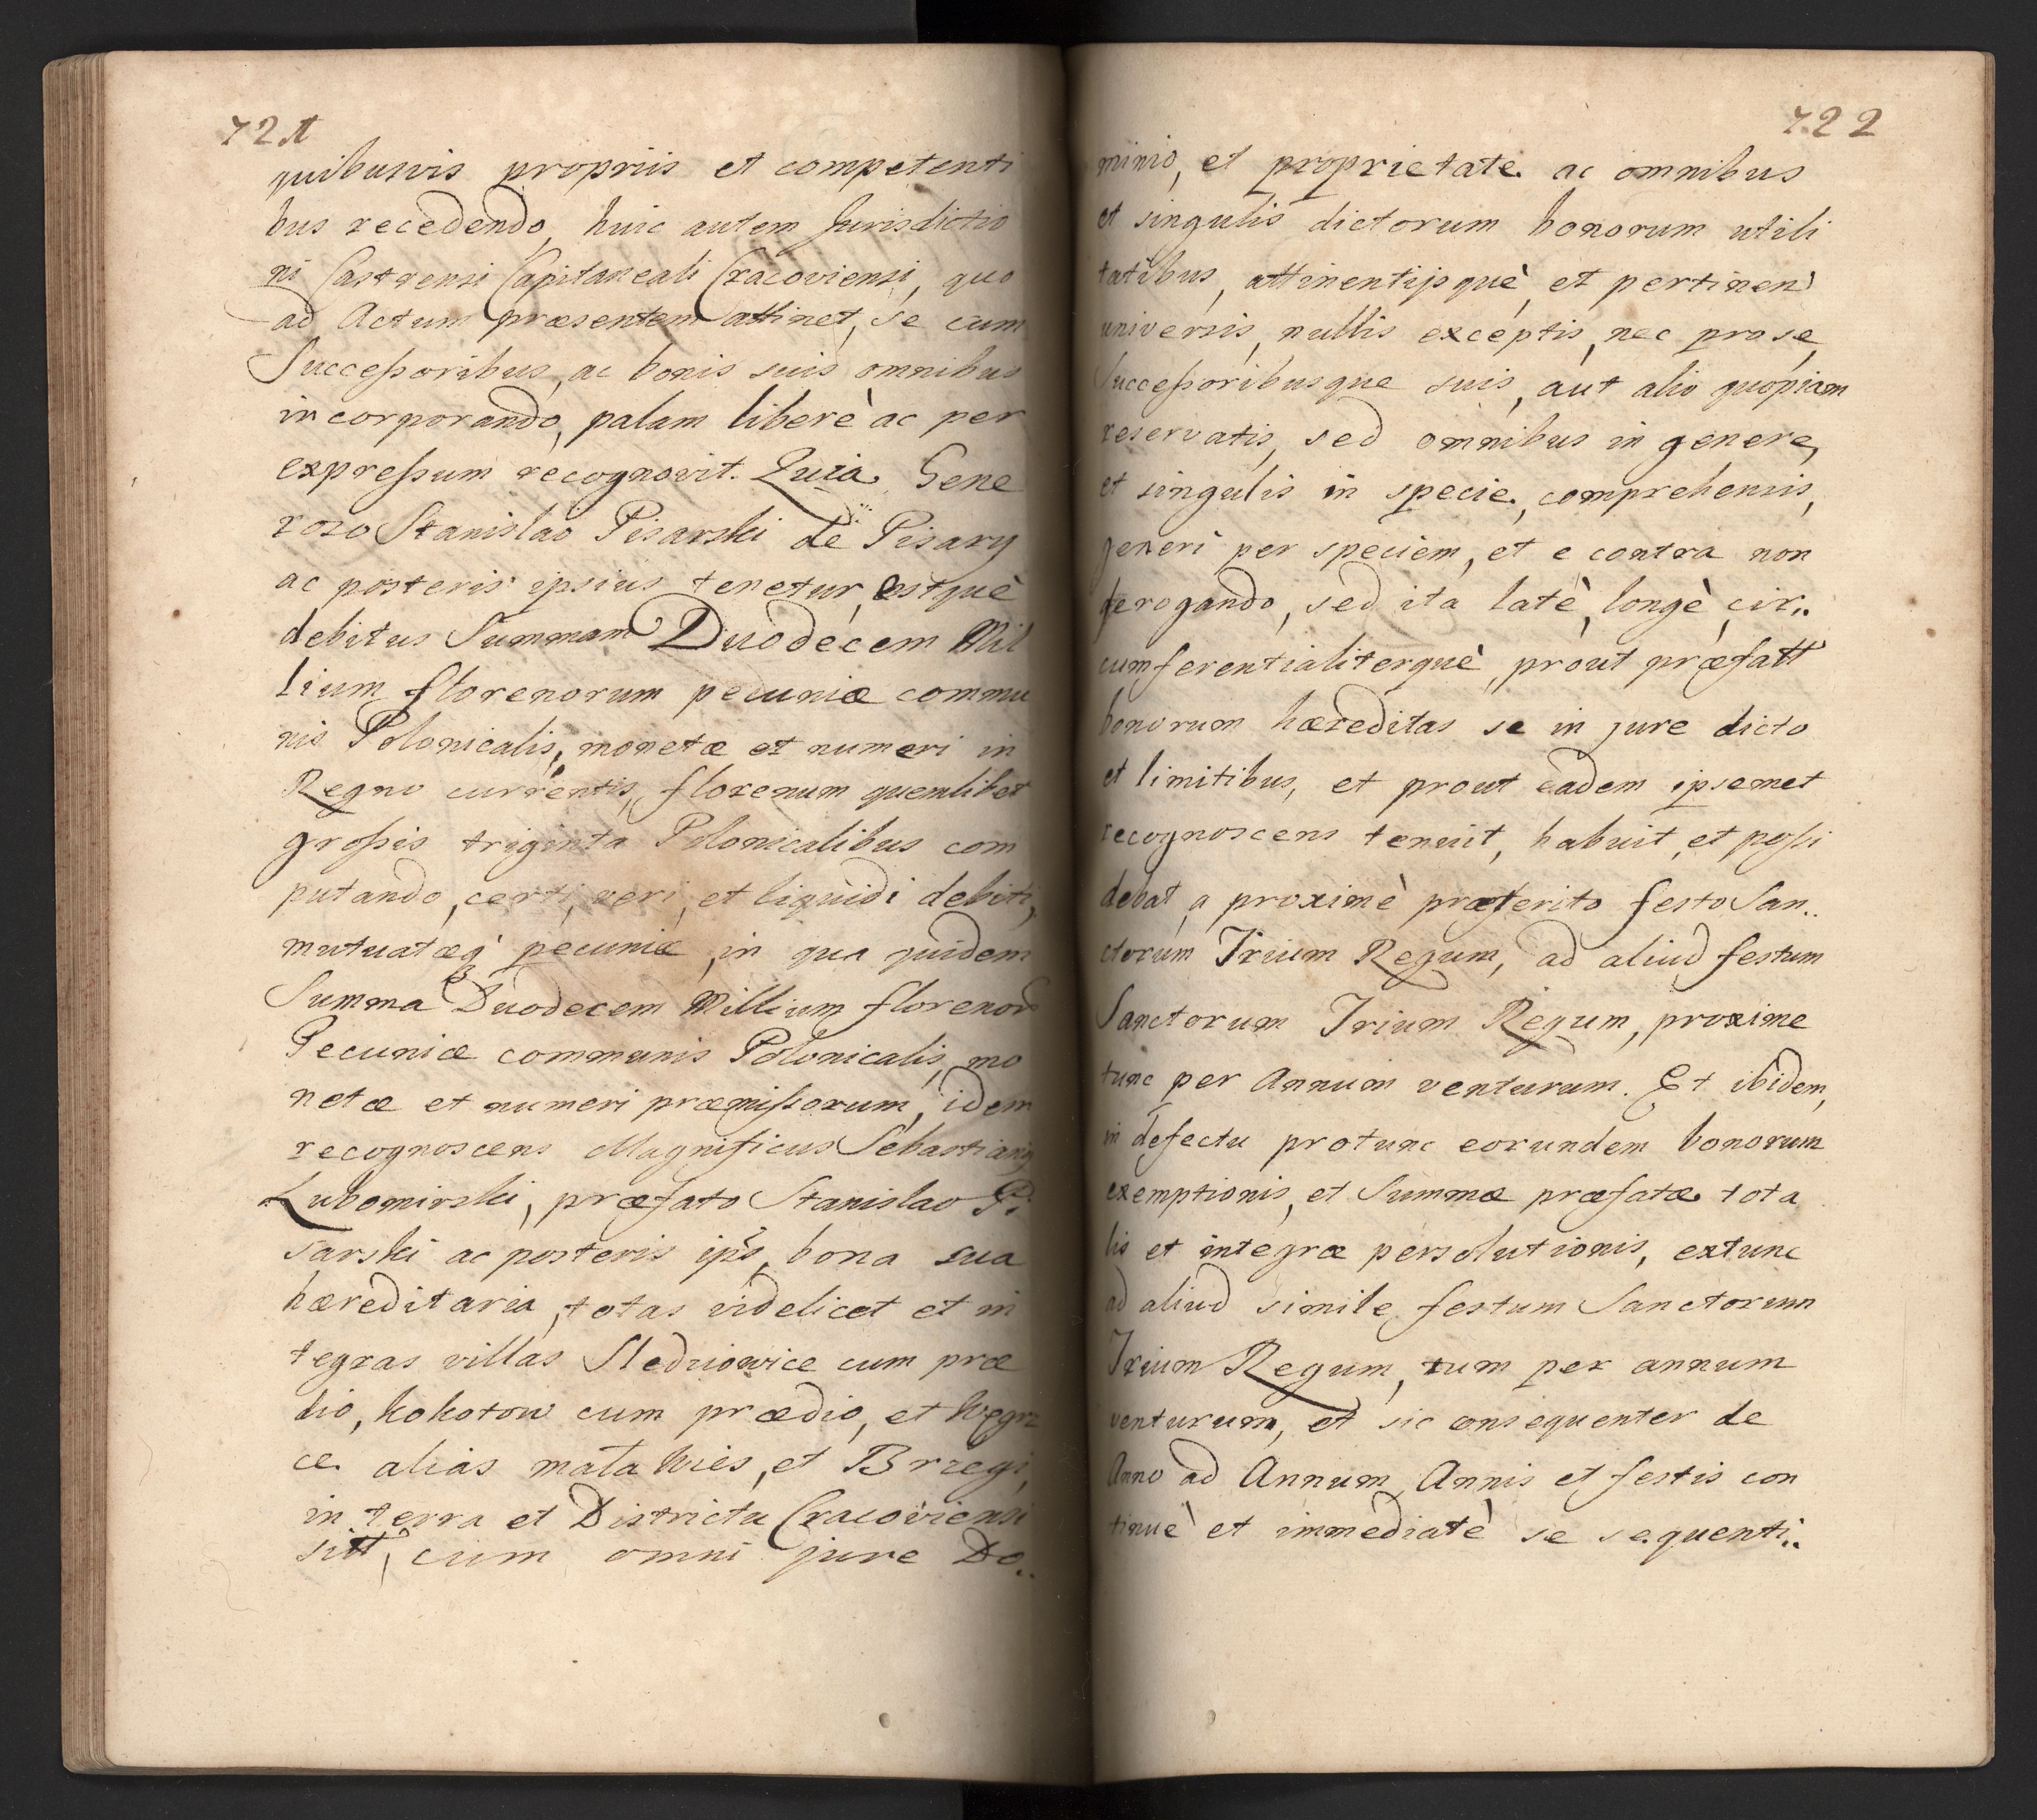 721
quibusvis propriis et competenti
bus recedendo, huic autem Jurisdictio
ni Castrensi Capitaneali Cracoviensi, quo
ad Actum præsentem attinet, se cum
Successoribus, ac bonis suis omnibus
incorporando, palam liberè ac per
expressum recognovit. Quia Gene
roso Stanislao Pisarski de Pisary
ac posteris ipsius tenetur, estquè
debitus Summam Duodecem Mil
lium florenorum pecuniæ commu
nis Polonicalis, monetæ et numeri in
Regno currentis, florenum quemlibet
grossis triginta Polonicalibus com
putando, certi, veri, et liquidi debiti,
mutuatæq' pecuniæ, in qua quidem
Summa Duodecem Millium floreno
Pecuniæ communis Polonicalis, mo
netæ et numeri præmissorum, idem
recognoscens Magnificus Sebastianus
Lubomirski, præfato Stanislao Pi
sarski ac posteris ips, bona sua
hæreditaria, totas videlicet et in
tegras villas Sledziowice cum præ
dio, Kokotow cum prædio, et Węgrz
ce alias mała wies, et Brzegi,
in terra et Districtu Cracoviensi
sitt, cum omni jure Do..
722
minio, et proprietate ac omnibus
et singulis dictorum bonorum utili
tatibus, attinentijsquè, et pertinen'
universis, nullis exceptis, nec pro se,
Successoribusque suis, aut alio quopiam
reservatis, sed omnibus in genere,
et singulis in specie, comprehensis,
generi per speciem, et e contra non
derogando, sed ita latè, longè, cir..
cumferentialiterquè, prout præfatt
bonorum hæreditas se in jure dicto
et limitibus, et prout eadem ipsemet
recognoscens tenuit, habuit, et possi
debat, a proximè præterito festo San..
ctorum Trium Regum, ad aliud festum
Sanctorum Trium Regum, proxime
tunc per Annum venturum. Et ibidem,
in defectu protunc eorundem bonorum
exemptionis, et Summæ præfatæ tota
lis et integræ persolutionis, extunc
ad aliud simile festum Sanctorum
Trium Regum, tum per annum
venturum, et sic consequenter de
Anno ad Annum, Annis et festis con
tinuè et immediatè se sequenti..